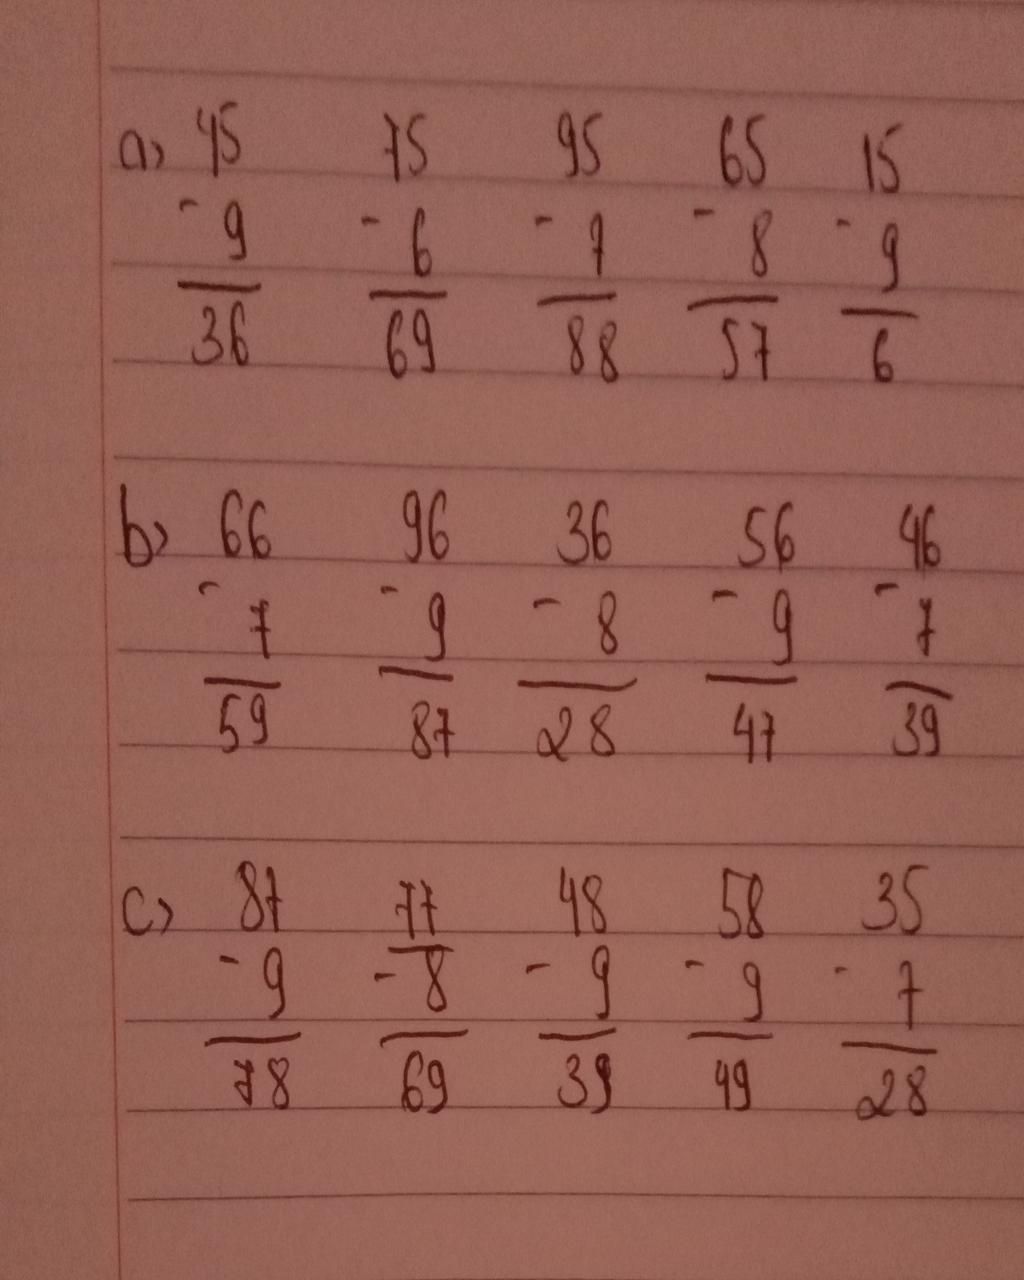 a) 45 75 95 65 15
- 9 - 6 - 7 - 8 - 9
36 69 88 57 6
b) 66 96 36 56 46
- 7 - 9 - 8 - 9 - 7
59 87 28 47 39
c) 87 77 48 58 35
- 9 - 8 - 9 - 9 - 7
78 69 39 49 28